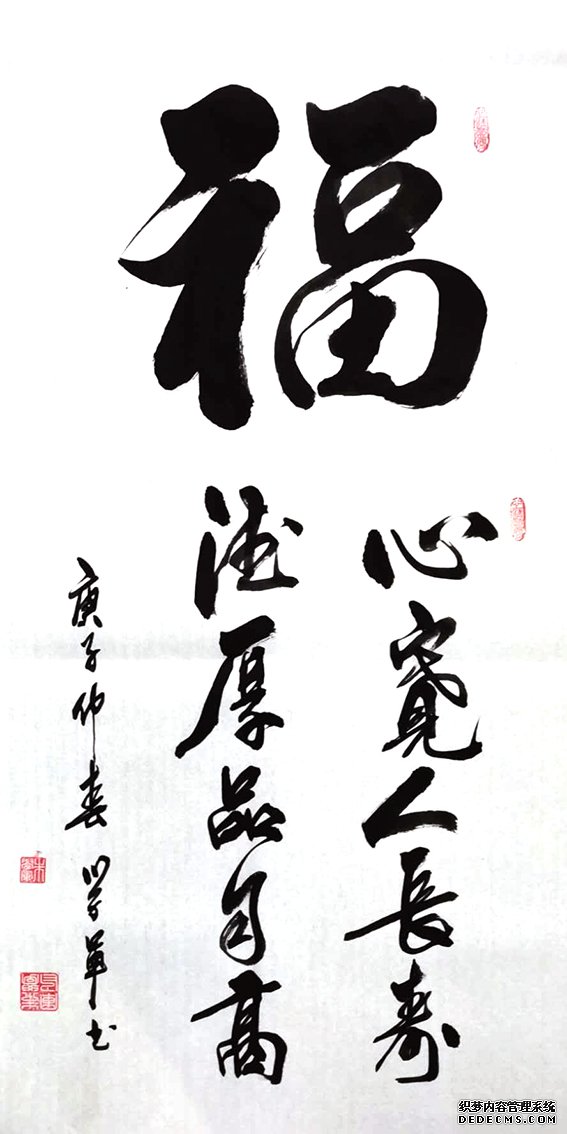 福
心寬人長壽
德厚品自高
庚子仲春學軍书
织梦内容管理系统
DEDECMS.COM